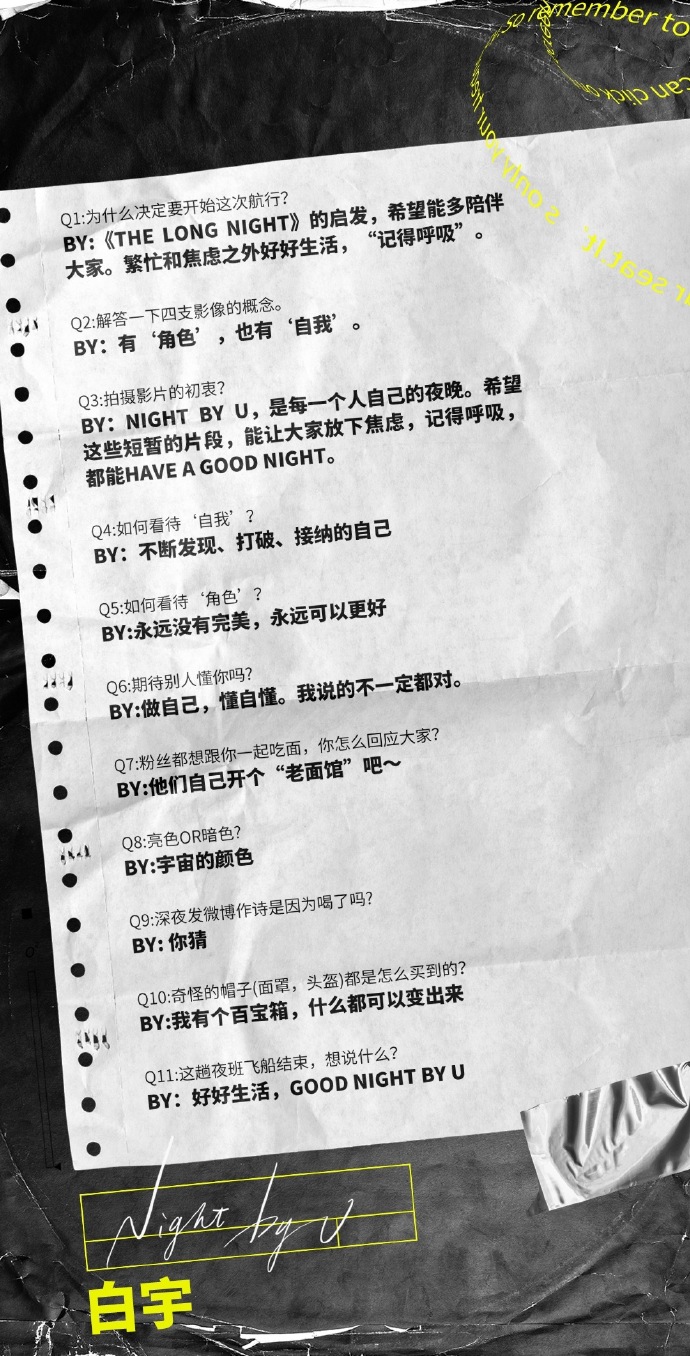 so remember to
can click on
s only your kiss
ur seat.It
Q1:为什么决定要开始这次航行?
BY:《THE LONG NIGHT》的启发，希望能多陪伴
大家。繁忙和焦虑之外好好生活，“记得呼吸”。
Q2:解答一下四支影像的概念。
BY：有‘角色’，也有‘自我’。
Q3:拍摄影片的初衷?
BY：NIGHT BY U，是每一个人自己的夜晚。希望
这些短暂的片段，能让大家放下焦虑，记得呼吸，
都能HAVE A GOOD NIGHT。
Q4:如何看待‘自我’？
BY：不断发现、打破、接纳的自己
Q5:如何看待‘角色’？
BY:永远没有完美，永远可以更好
Q6:期待别人懂你吗?
BY:做自己，懂自懂。我说的不一定都对。
Q7:粉丝都想跟你一起吃面，你怎么回应大家?
BY:他们自己开个“老面馆”吧～
Q8:亮色OR暗色?
BY:宇宙的颜色
Q9:深夜发微博作诗是因为喝了吗?
BY: 你猜
Q10:奇怪的帽子(面罩，头盔)都是怎么买到的?
BY:我有个百宝箱，什么都可以变出来
Q11:这趟夜班飞船结束，想说什么?
BY：好好生活，GOOD NIGHT BY U
Night by U
白宇